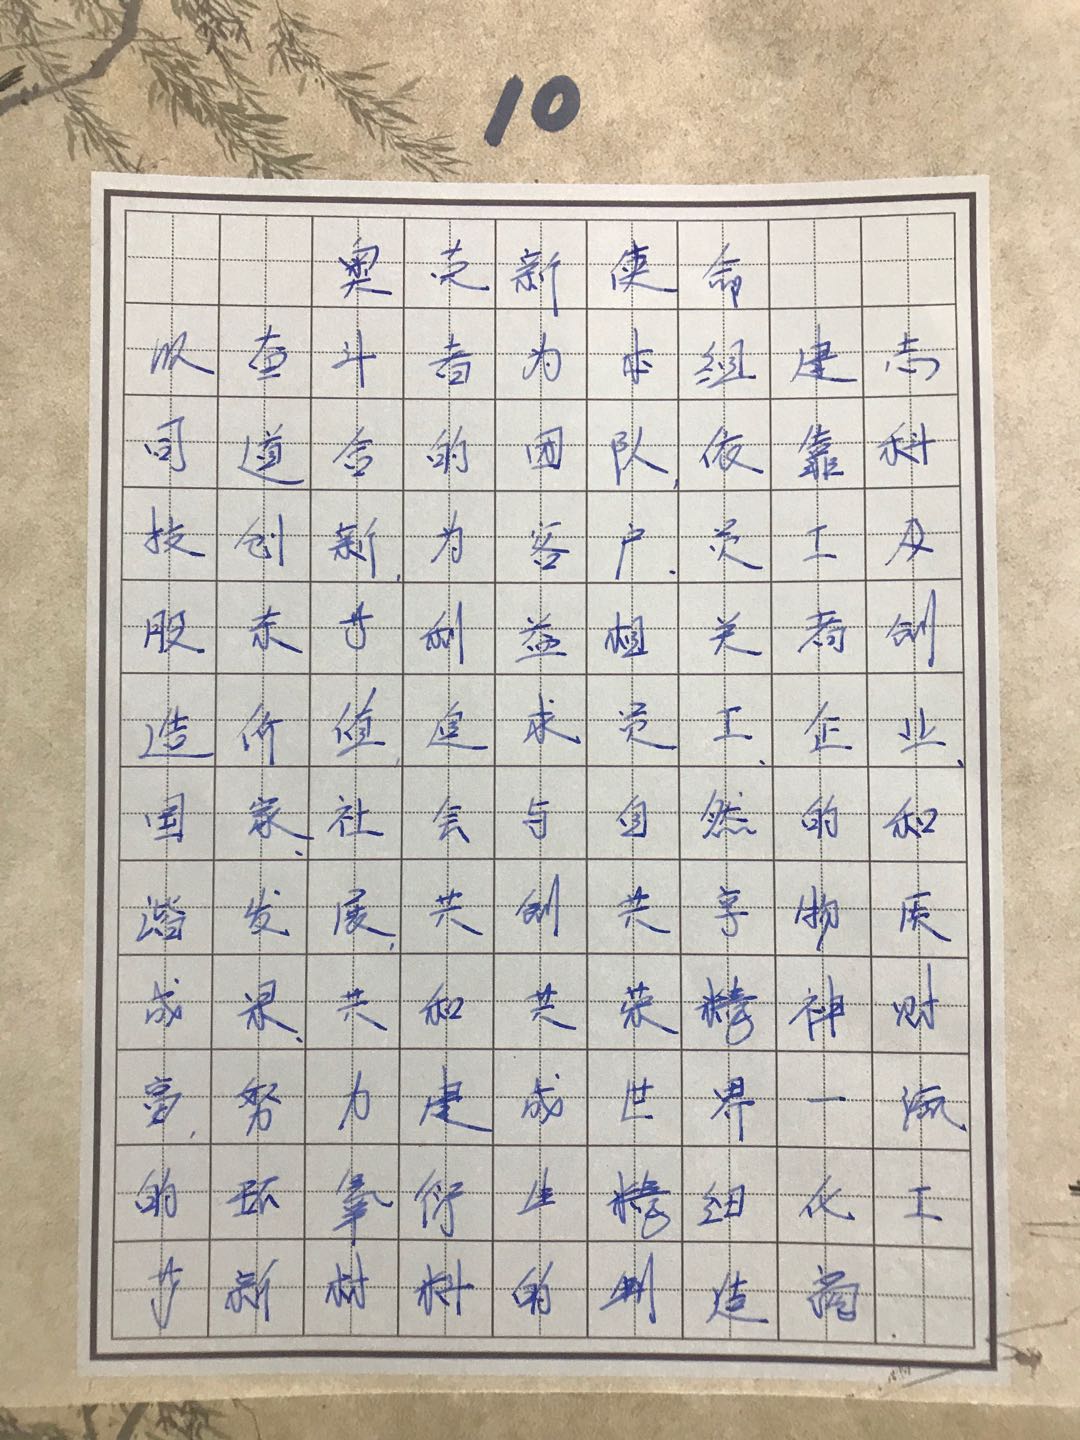 10
奥克新使命
以奋斗者为本组建志
同道合的团队,依靠科
技创新,为客户、员工及
股东等利益相关者创
造价值,追求员工、企业、
国家、社会与自然的和
谐发展,共创共享物质
成果、共和共荣精神财
富,努力建成世界一流
的环氧衍生精细化工
等新材料的制造商